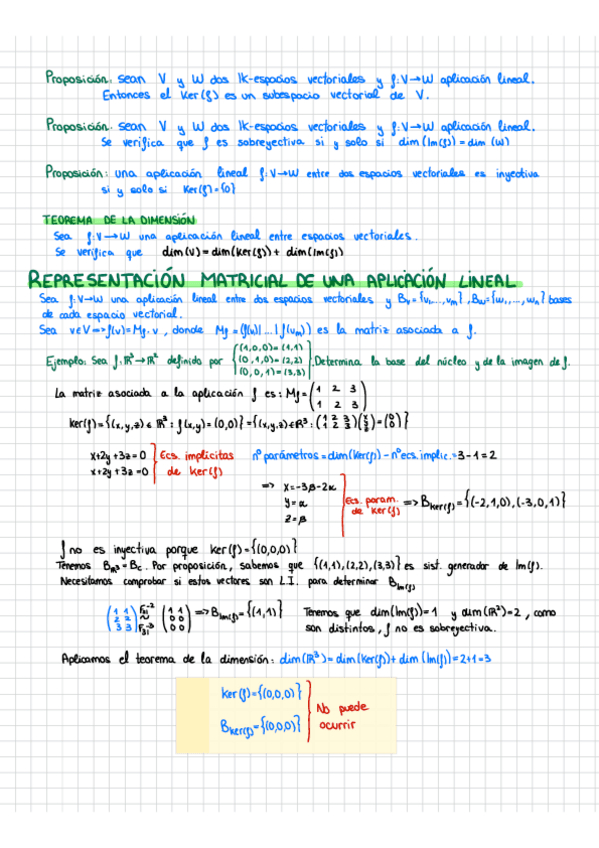 Proposición. Sean V y W dos IK-espacios vectoriales y f:V→W aplicación lineal.
Entonces el Ker(f) es un subespacio vectorial de V.
Proposición. Sean V y W dos IK-espacios vectoriales y f:V→W aplicación lineal.
Se verifica que f es sobreyectiva si y solo si dim(Im(f))=dim(W)
Proposición: una aplicación lineal f:V→W entre dos espacios vectoriales es inyectiva
si y solo si Ker(f)={0}
TEOREMA DE LA DIMENSIÓN
Sea f:V→W una aplicación lineal entre espacios vectoriales.
Se verifica que dim(V)=dim(Ker(f))+dim(Im(f))
REPRESENTACIÓN MATRICIAL DE UNA APLICACIÓN LINEAL
Sea f:V→W una aplicación lineal entre dos espacios vectoriales y Bv={v1,...,vm}, Bw={w1,...,wn} bases
de cada espacio vectorial.
Sea v∈V=>f(v)=Mf·v, donde Mf=(f(v1)|...|f(vm)) es la matriz asociada a f.
f(1,0,0)=(1,1)
Ejemplo: Sea f:IR³→IR² definido por f(0,1,0)=(2,2) .Determina la base del núcleo y de la imagen de f.
f(0,0,1)=(3,3)
La matriz asociada a la aplicación f es: Mf=(1 2 3
1 2 3)
Ker(f)={(x,y,z)∈IR³: f(x,y)=(0,0)}={(x,y,z)∈IR³: (1 2 3 / 1 2 3)(x y z)=(0 0)
x+2y+3z=0 Ecs. implícitas nº parámetros=dim(Ker(f))-nºecs.implic.=3-1=2
x+2y+3z=0 de Ker(f)
=> x=-3β-2α
y=α Ecs. param. => BKer(f)={(-2,1,0),(-3,0,1)}
z=β de Ker(f)
f no es inyectiva porque Ker(f)={(0,0,0)}
Tenemos BIR³=Bc. Por proposición, sabemos que {(1,1),(2,2),(3,3)} es sist. generador de Im(f).
Necesitamos comprobar si estos vectores son L.I. para determinar BIm(f)
(1 1 / 2 2 / 3 3) F21-2 ~ F31-3 (1 1 / 0 0 / 0 0) => BIm(f)={(1,1)} Tenemos que dim(Im(f))=1 y dim(IR²)=2, como
son distintos, f no es sobreyectiva.
Aplicamos el teorema de la dimensión: dim(IR³)=dim(Ker(f))+dim(Im(f))=2+1=3
Ker(f)={(0,0,0)}
No puede
BKer(f)={(0,0,0)} ocurrir